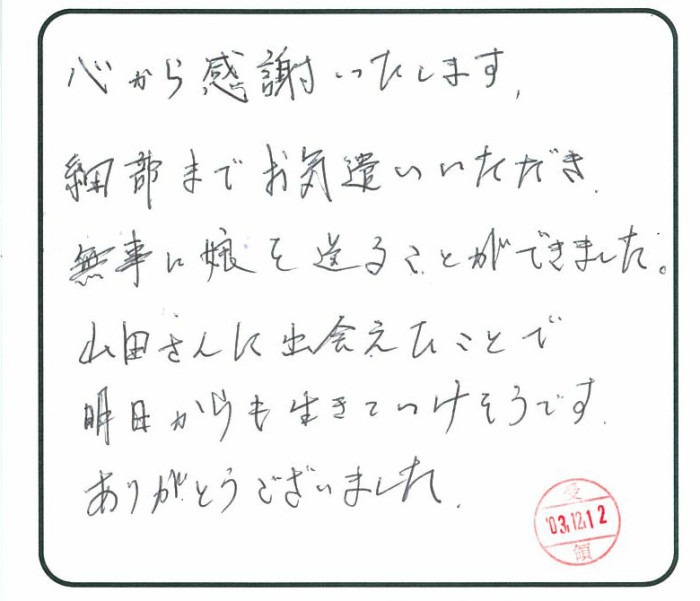 心から感謝いたします,
細部までお気遣いいただき.
無事に娘を送ることができました。
山田さんに出会えたことで
明日からも生きていけそうです.
ありがとうございました.
受
'03.12.12
領